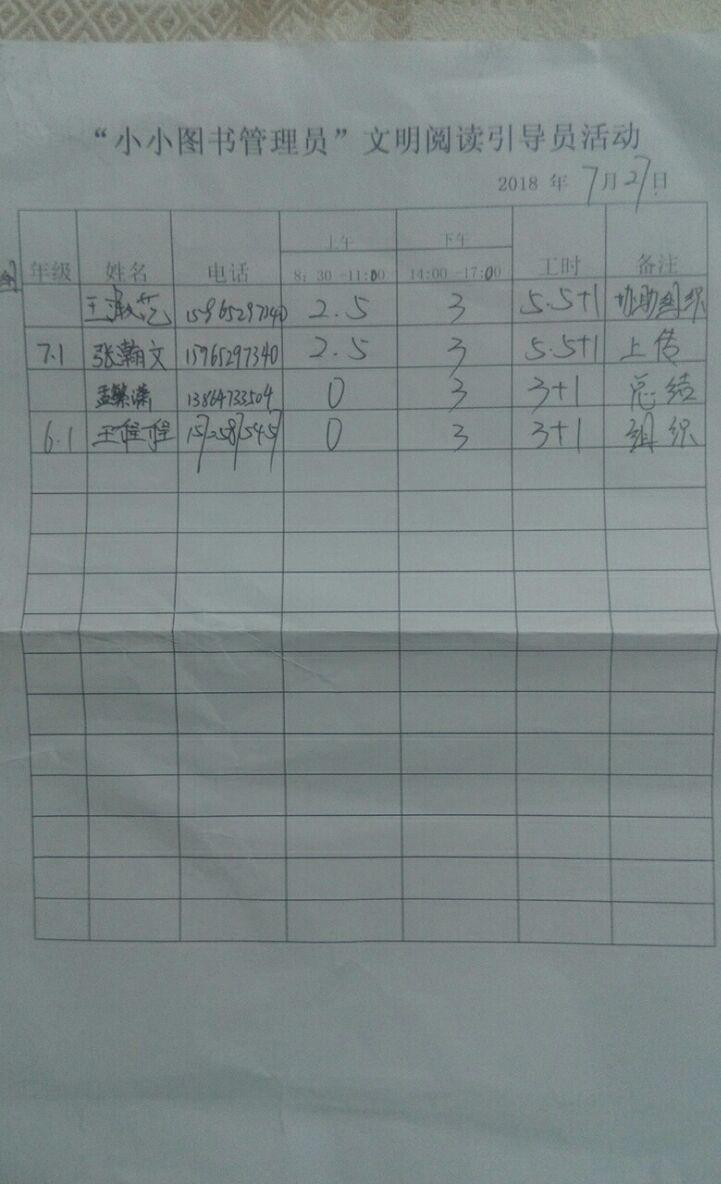 “小小图书管理员”文明阅读引导员活动
2018 年 7月27日
年级 姓名 电话 上午 8：30 -11:00 下午 14:00 -17:00 工时 备注
王淑艺 15965297340 2.5 3 5.5+1 协助组织
7.1 张瀚文 15965297340 2.5 3 5.5+1 上传
孟繁潇 13864733504 0 3 3+1 总结
6.1 王程程 0 3 3+1 组织